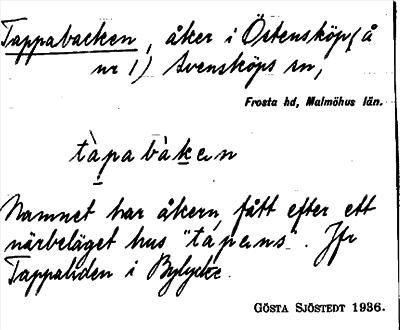 Tappabacken, åker i Östensköp (å
nr 1) Svensköps sn,
Frosta hd, Malmöhus län.
tàpabàkен
Namnet har åkern fått efter ett
närbeläget hus "tápens". Jfr
Tappaliden i Bylycke.
GÖSTA SJÖSTEDT 1936.